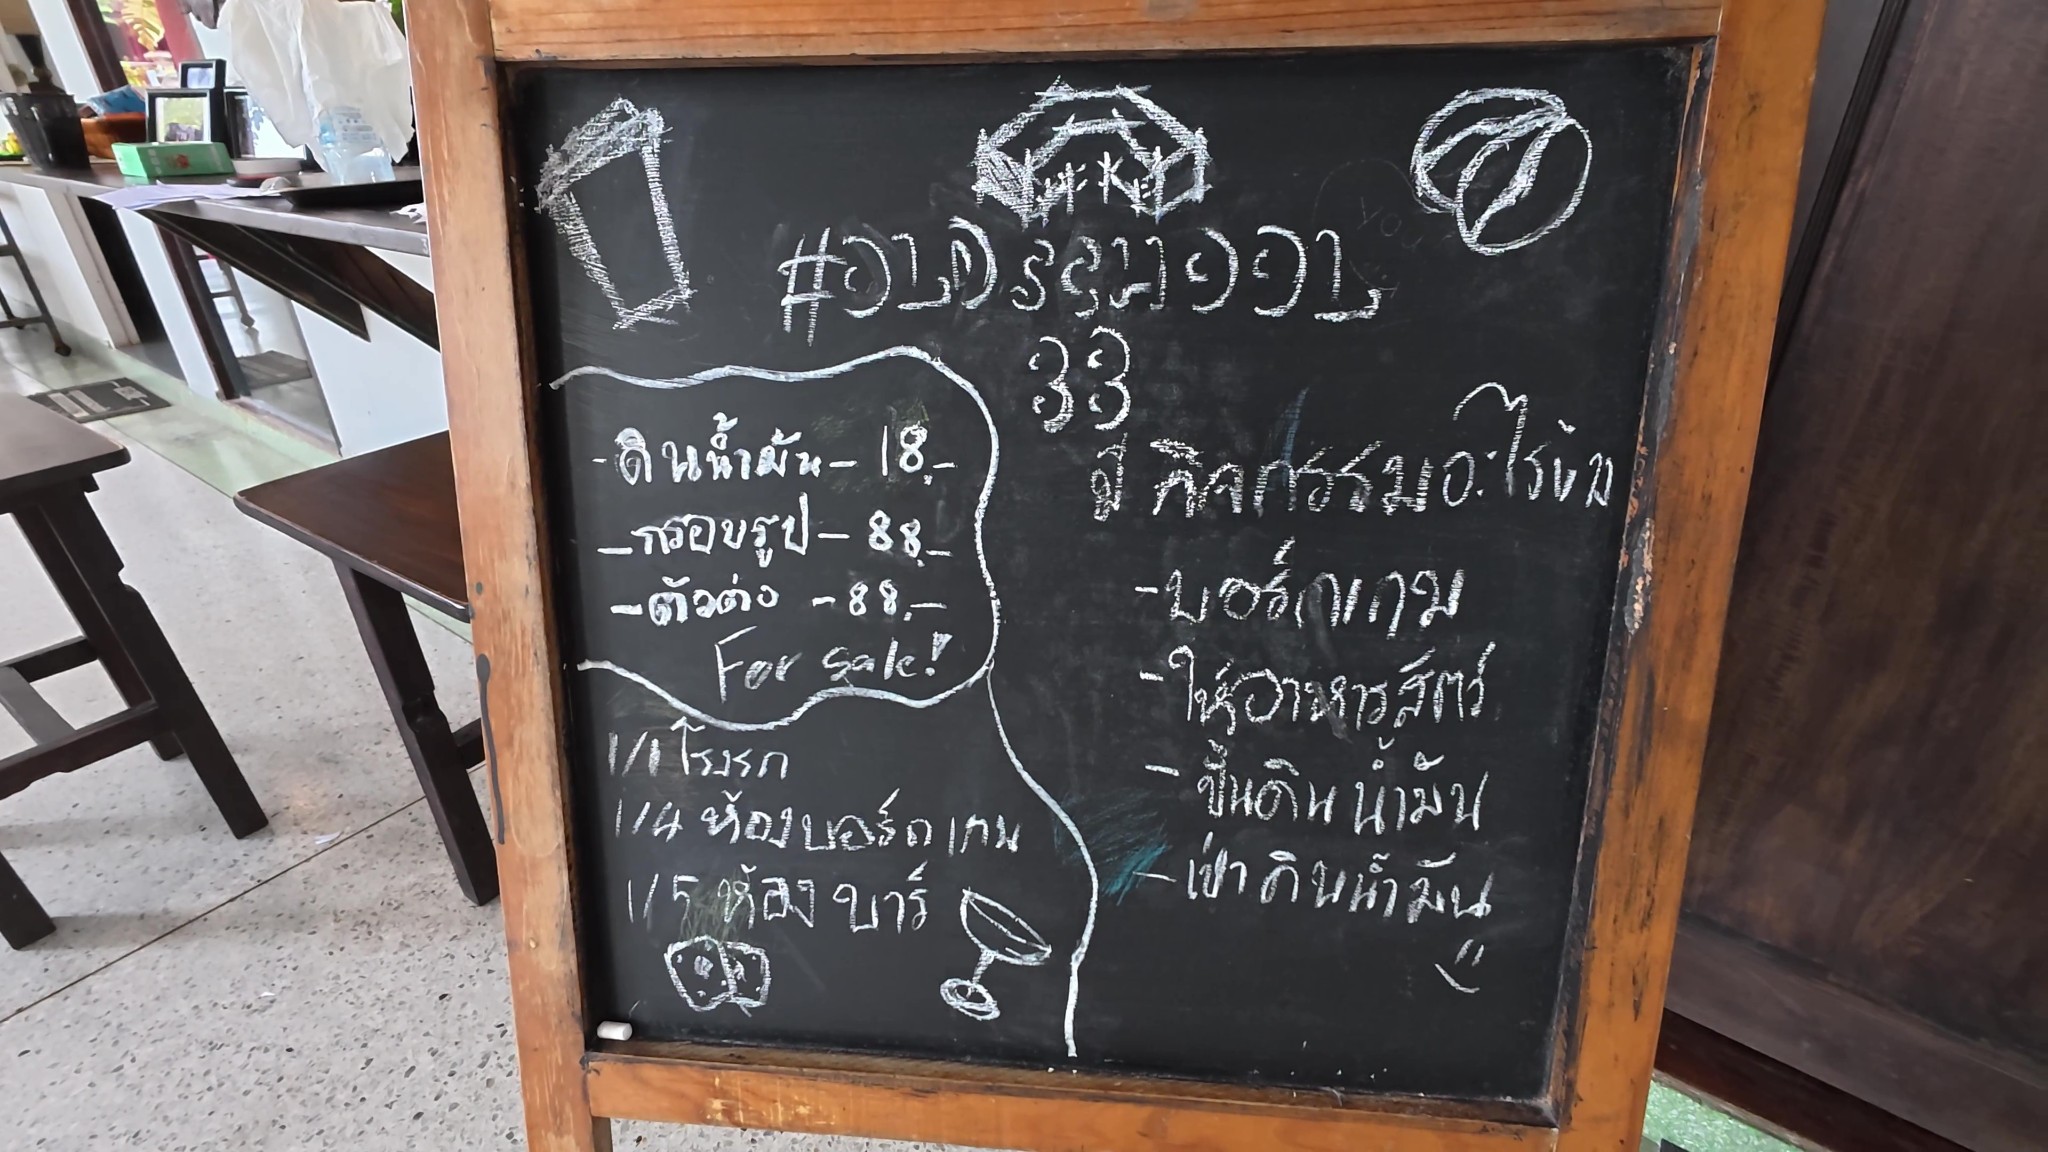 33
-ดินน้ำมัน- 18.-
-กรอบรูป- 88.-
-ตัวต่อ -88.-
For Sale!
1/1 โรงรถ
1/4 ห้องบอร์ดเกม
1/5 ห้องบาร์
มีกิจกรรมอะไรบ้าง
-บอร์ดเกม
-ให้อาหารสัตว์
-ปั้นดินน้ำมัน
-เป่าดินน้ำมัน